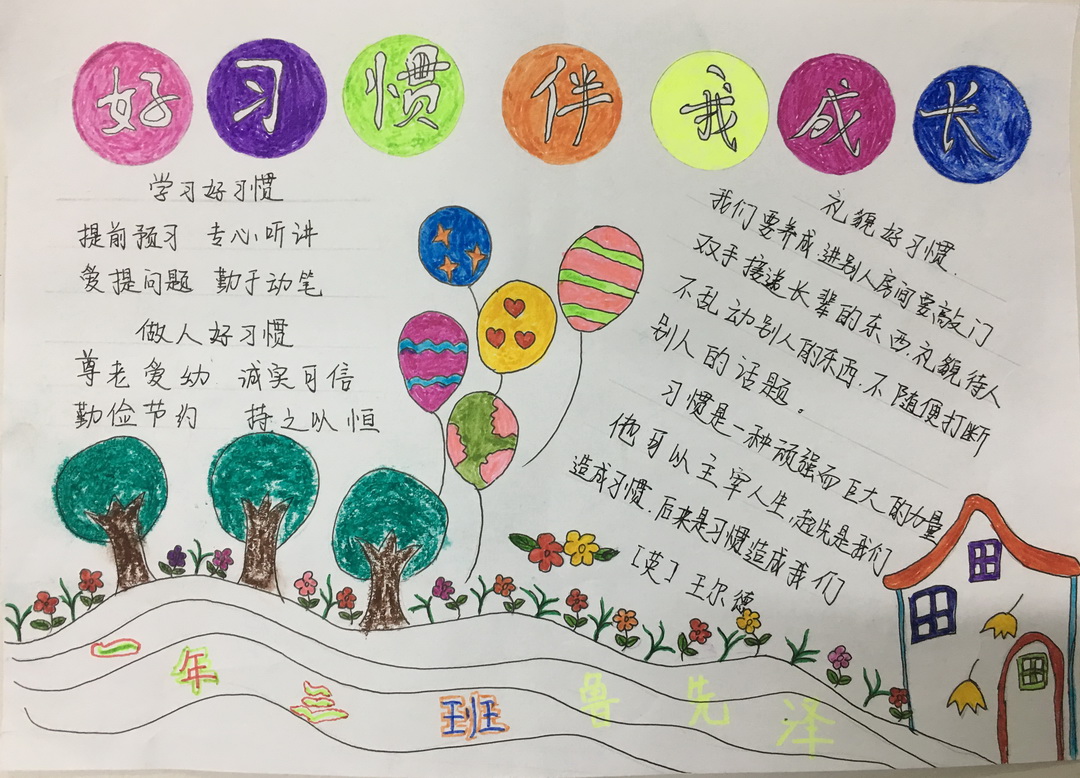 好习惯伴我成长
学习好习惯
提前预习 专心听讲
爱提问题 勤于动笔
做人好习惯
尊老爱幼 诚实可信
勤俭节约 持之以恒
礼貌好习惯.
我们要养成,进别人房间要敲门
双手接递长辈的东西.礼貌待人
不乱动别人的东西.不随便打断
别人的话题。
习惯是一种顽强而巨大的力量
他可以主宰人生,起先是我们
造成习惯.后来是习惯造成我们
[英] 王尔德
一年三班 鲁先泽